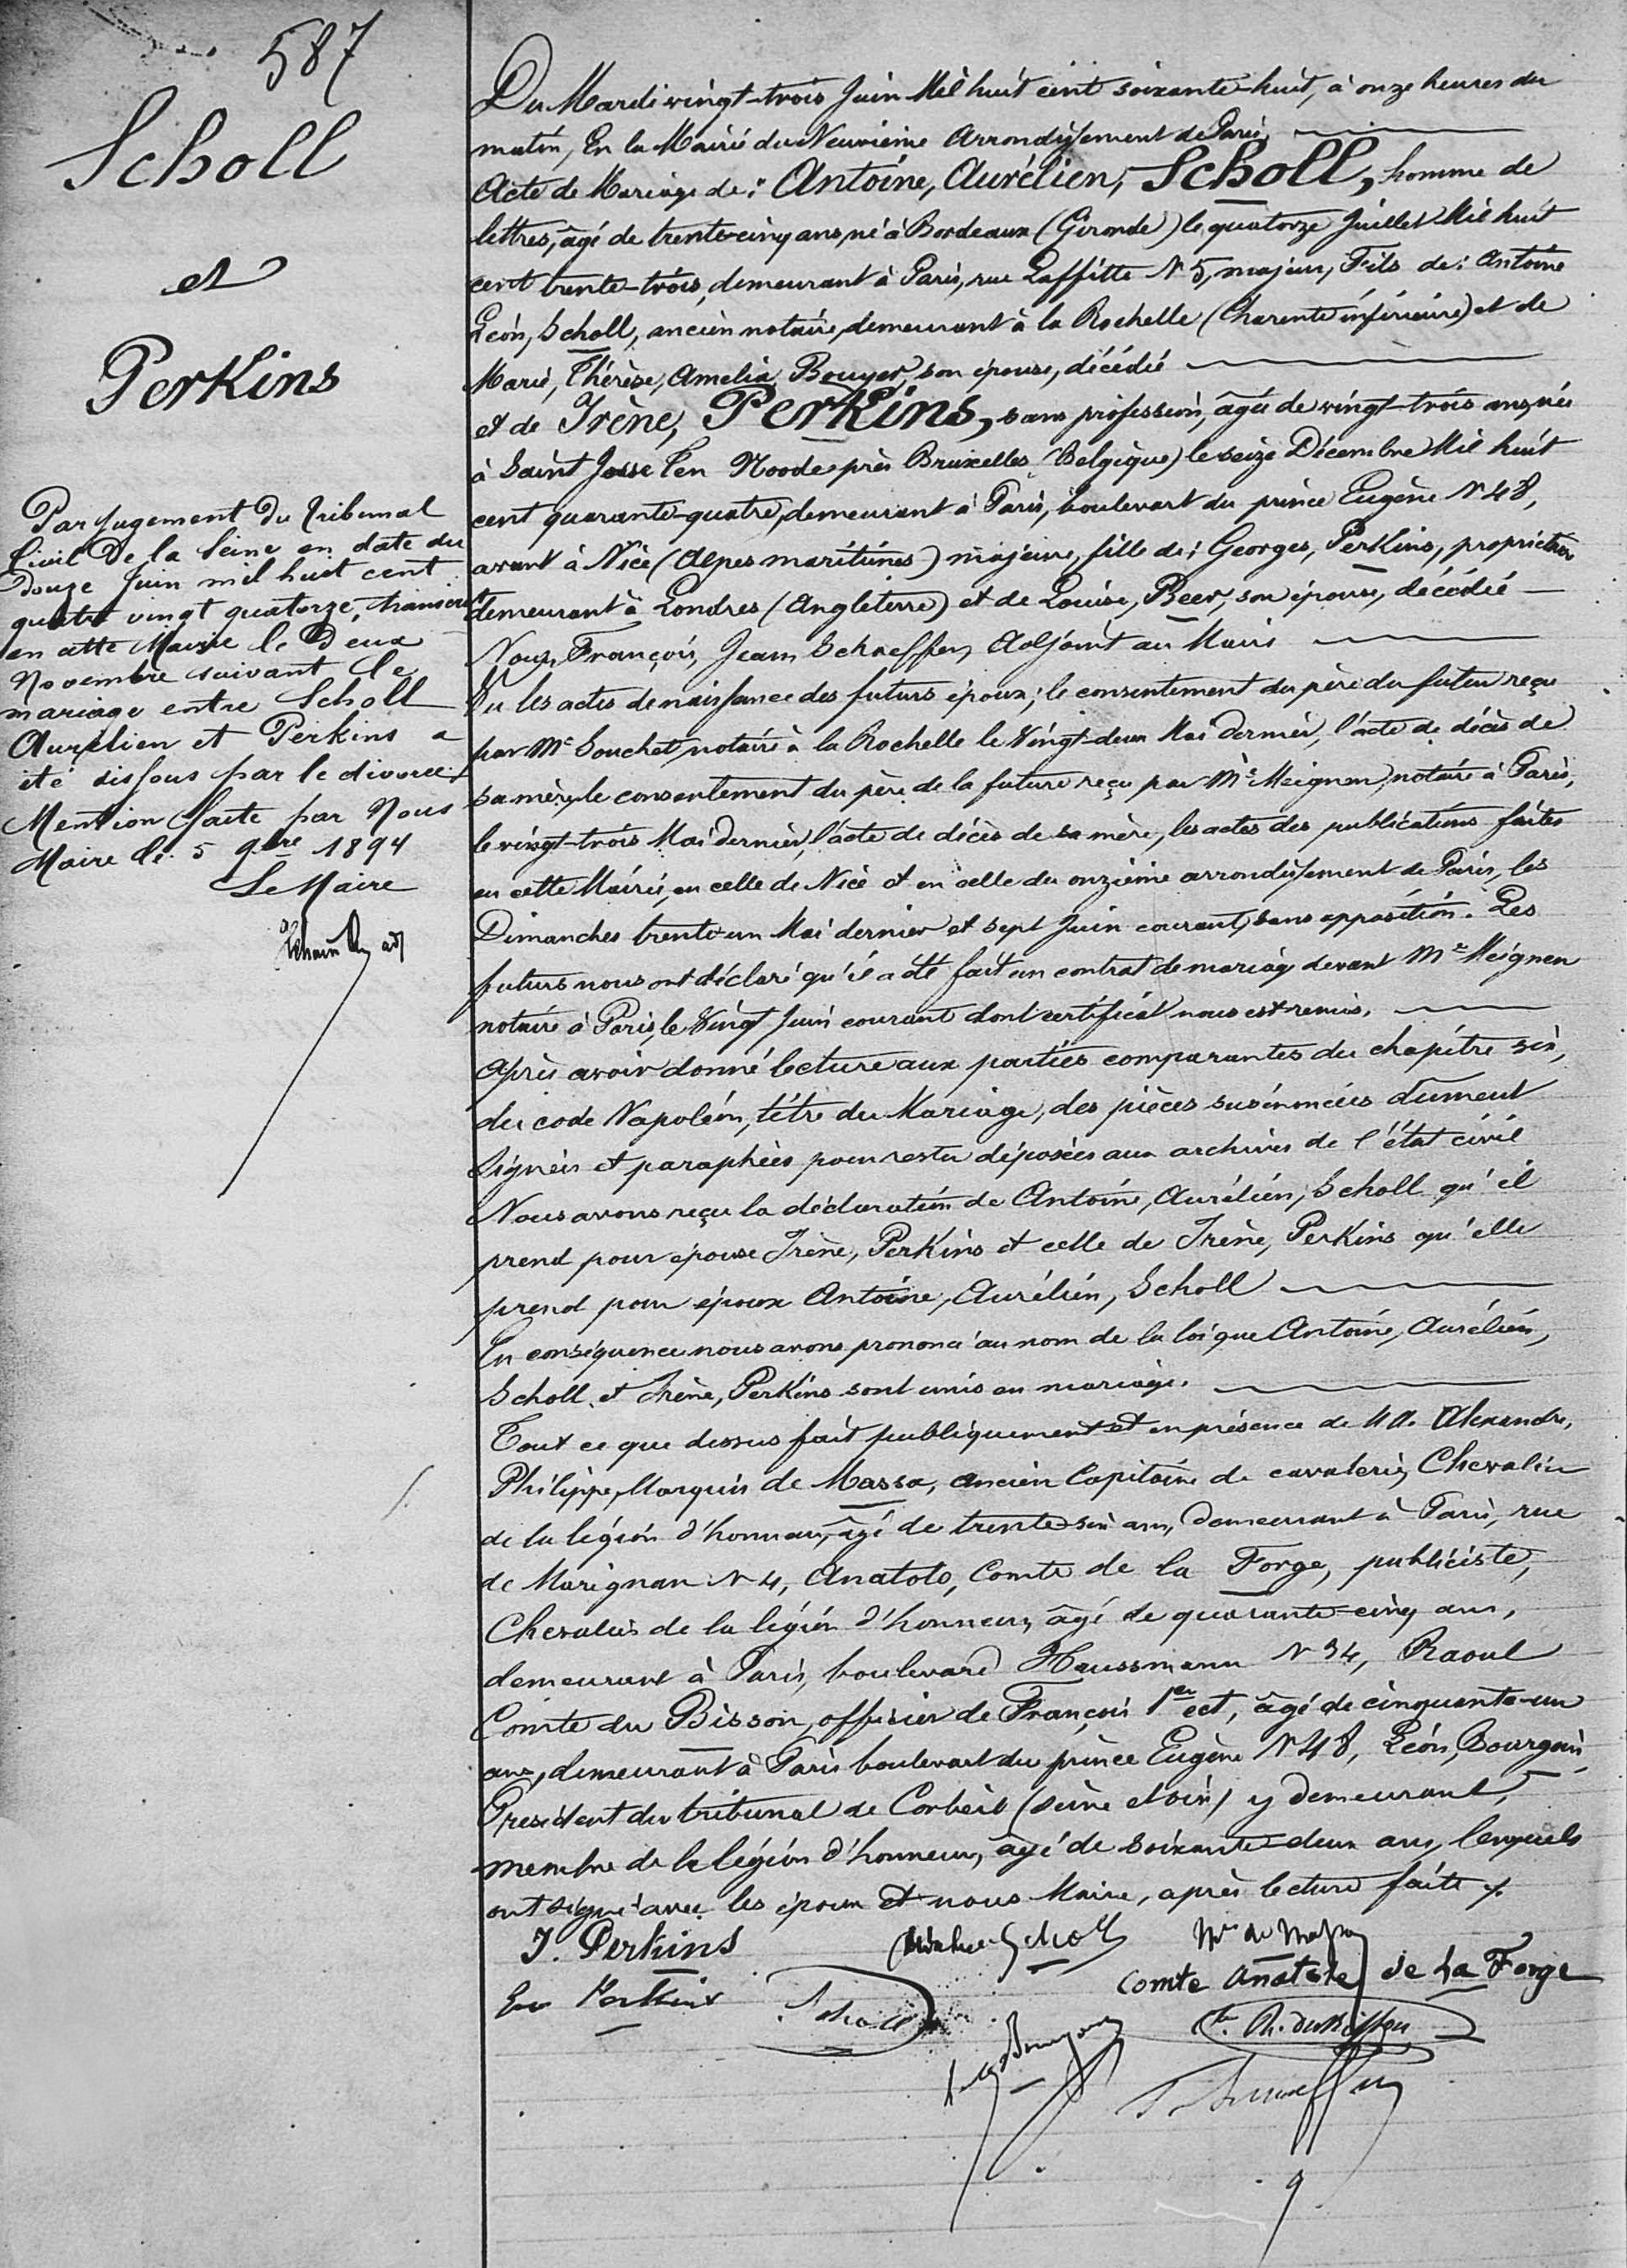 587
Scholl
et
Perkins
Par jugement du Tribunal
Civil de la Seine en date du
Douze Juin mil huit cent
quatre vingt quatorze, transcrit
en cette Mairie le Deux
Novembre suivant le
mariage entre Scholl
Aurélien et Perkins a
été dissous par le divorce.
Mention faite par Nous
Maire le 5 9bre 1894
Le Maire
Du Mardi vingt-trois Juin Mil huit cent soixante-huit, à onze heures du
matin, En la Mairie du Neuvième Arrondissement de Paris,
Acte de Mariage de: Antoine, Aurélien, Scholl, homme de
lettres, âgé de trente-cinq ans, né à Bordeaux (Gironde) le quatorze Juillet Mil huit
cent trente-trois, demeurant à Paris, rue Laffitte N° 5, majeur, Fils de: Antoine
Léon, Scholl, ancien notaire, demeurant à la Rochelle (Charente inférieure) et de
Marie, Thérèse, Amelia Bouyer, son épouse, décédée
et de Irène, Perkins, sans profession, âgée de vingt-trois ans, née
à Saint Josse Ten Noode près Bruxelles (Belgique) le seize Décembre Mil huit
cent quarante-quatre, demeurant à Paris, boulevart du prince Eugène N° 48,
avant à Nice (Alpes maritimes) majeure, fille de: Georges, Perkins, propriétaire
demeurant à Londres (Angleterre) et de Louise, Beer, son épouse, décédée
Nous, François, Jean Schaeffer, Adjoint au Maire
Vu les actes de naissance des futurs époux; le consentement du père du futur reçu
par Me Souchet, notaire à la Rochelle le Vingt-deux Mai dernier, l'acte de décès de
sa mère, le consentement du père de la future reçu par Me Meignen, notaire à Paris,
le vingt-trois Mai dernier, l'acte de décès de sa mère, les actes des publications faites
en cette Mairie, en celle de Nice et en celle du onzième arrondissement de Paris, les
Dimanches trente-un Mai dernier et sept Juin courant, sans opposition. Les
futurs nous ont déclaré qu'il a été fait un contrat de mariage devant Me Meignen
notaire à Paris, le Vingt Juin courant dont certificat nous est remis.
Après avoir donné lecture aux parties comparantes du chapitre six,
du code Napoléon, titre du Mariage, des pièces susénoncées dûment
signées et paraphées pour rester déposées aux archives de l'état civil
Nous avons reçu la déclaration de Antoine, Aurélien, Scholl qu'il
prend pour épouse Irène, Perkins et celle de Irène, Perkins qu'elle
prend pour époux Antoine, Aurélien, Scholl
En conséquence nous avons prononcé au nom de la loi que Antoine, Aurélien,
Scholl et Irène, Perkins sont unis en mariage.
Tout ce que dessus fait publiquement et en présence de MM. Alexandre,
Philippe, Marquis de Massa, ancien Capitaine de cavalerie, Chevalier
de la légion d'honneur, âgé de trente-six ans, demeurant à Paris, rue
de Marignan N° 4, Anatole, Comte de la Forge, publiciste,
Chevalier de la légion d'honneur, âgé de quarante-cinq ans,
demeurant à Paris, boulevard Haussmann N° 34, Raoul
Comte du Bisson, officier de François 1er ect, âgé de cinquante-un
ans, demeurant à Paris boulevart du prince Eugène N° 48, Léon, Bourgoin
Président du tribunal de Corbeil (seine et oise) y demeurant,
membre de la légion d'honneur, âgé de soixante-deux ans, lesquels
ont signé avec les époux et nous Maire, après lecture faite
I. Perkins
Scholl
Mis de Massa
Perkins
Scholl
Comte Anatole de La Forge
Cte R. du Bisson
9